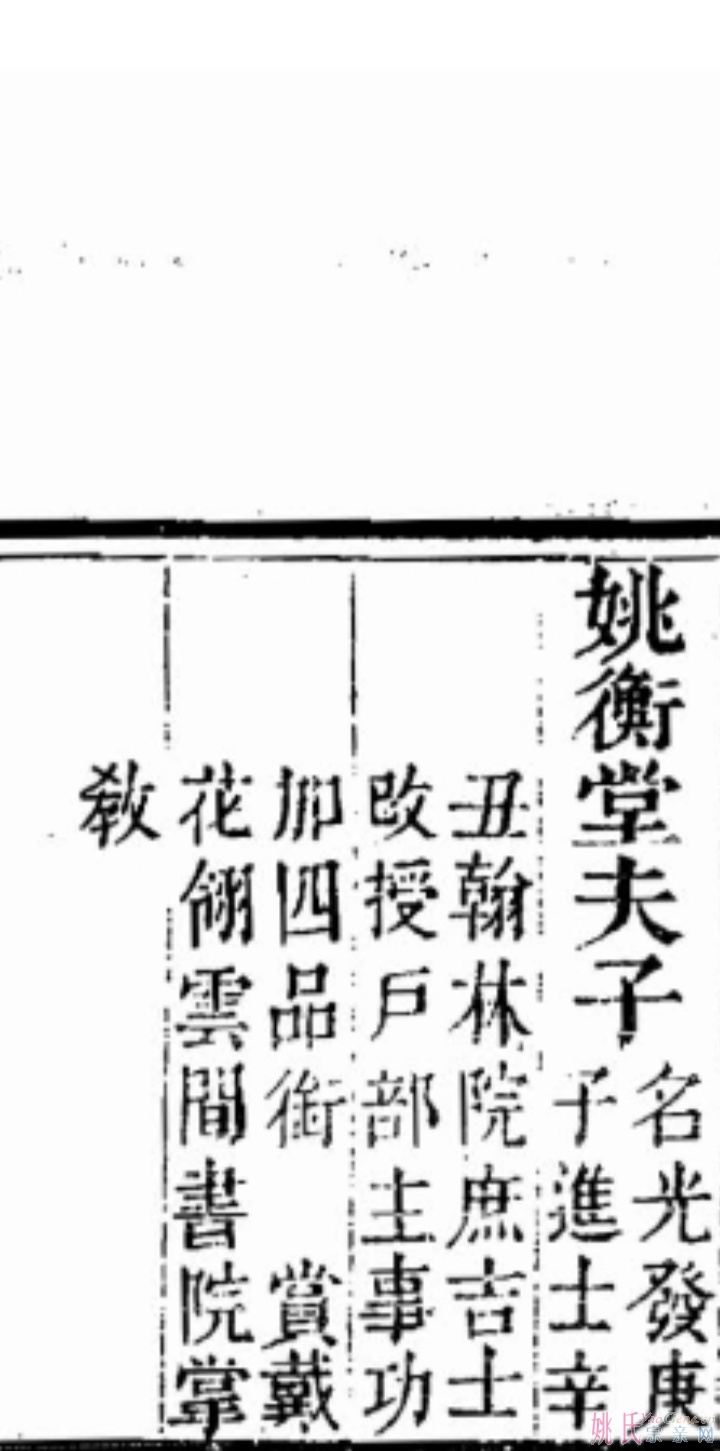 姚衡堂夫子
名光發庚
子進士辛
丑翰林院庶吉士
改授戶部主事功
加四品銜　賞戴
花翎雲間書院掌
教
姚氏宗亲网